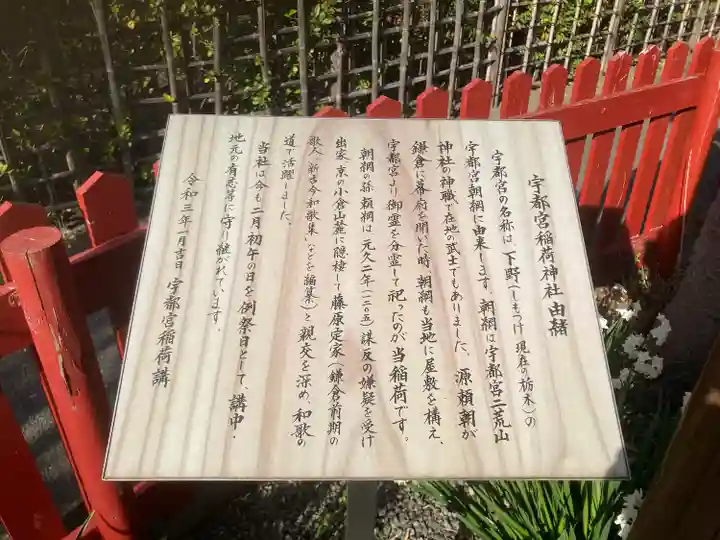 宇都宮稲荷神社 由緒
宇都宮の名称は、下野(しもつけ 現在の栃木)の
宇都宮朝綱に由来します。朝綱は宇都宮二荒山
神社の神職で在地の武士でもありました。源頼朝が
鎌倉に幕府を開いた時、朝綱も当地に屋敷を構え、
宇都宮より御霊を分霊して祀ったのが当稲荷です。
朝綱の孫頼綱は元久二年(一二〇五)謀反の嫌疑を受け
出家、京の小倉山麓に隠棲して藤原定家(鎌倉前期の
歌人「新古今和歌集」などを編纂)と親交を深め、和歌の
道で活躍しました。
当社は今も二月初午の日を例祭日として、講中・
地元の有志等に守り継がれています。
令和三年一月吉日 宇都宮稲荷講